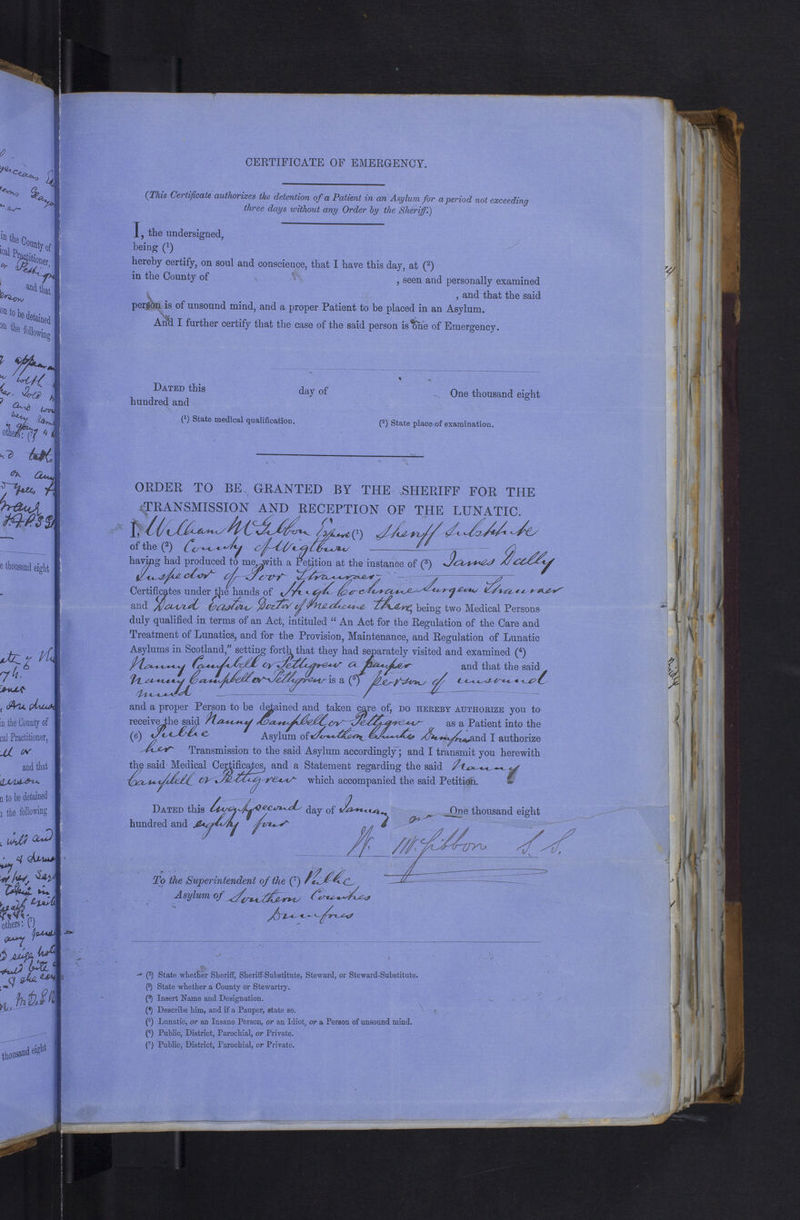 CERTIFICATE OF EMERGENCY.
(This Certificate authorizes the detention of a Patient in an Asylum for a period not exceeding
three days without any Order by the Sheriff.)
I, the undersigned,
being (¹)
hereby certify, on soul and conscience, that I have this day, at (²)
in the County of , seen and personally examined
, and that the said
person is of unsound mind, and a proper Patient to be placed in an Asylum.
And I further certify that the case of the said person is one of Emergency.
DATED this day of One thousand eight
hundred and
(¹) State medical qualification. (²) State place of examination.
ORDER TO BE GRANTED BY THE SHERIFF FOR THE
TRANSMISSION AND RECEPTION OF THE LUNATIC.
I, William McGibbon Esquire (¹) Sheriff Substitute
of the (²) County of Wigtown
having had produced to me, with a Petition at the instance of (³) James Dally
Inspector of Poor Stranraer
Certificates under the hands of Hugh Cochrane Surgeon Stranraer
and David Easton Doctor of Medicine there, being two Medical Persons
duly qualified in terms of an Act, intituled “ An Act for the Regulation of the Care and
Treatment of Lunatics, and for the Provision, Maintenance, and Regulation of Lunatic
Asylums in Scotland,” setting forth that they had separately visited and examined (⁴)
Nanny Campbell or Pettigrew a pauper and that the said
Nanny Campbell or Pettigrew is a (⁵) person of unsound
mind
and a proper Person to be detained and taken care of, DO HEREBY AUTHORIZE you to
receive the said Nanny Campbell or Pettigrew as a Patient into the
(6) Public Asylum of Southern Counties Dumfries and I authorize
her Transmission to the said Asylum accordingly; and I transmit you herewith
the said Medical Certificates, and a Statement regarding the said Nanny
Campbell or Pettigrew which accompanied the said Petition.
DATED this twenty second day of January One thousand eight
hundred and eighty four
W. McGibbon S. S.
To the Superintendent of the (⁷) Public
Asylum of Southern Counties
Dumfries
(¹) State whether Sheriff, Sheriff-Substitute, Steward, or Steward-Substitute.
(²) State whether a County or Stewartry.
(³) Insert Name and Designation.
(⁴) Describe him, and if a Pauper, state so.
(⁵) Lunatic, or an Insane Person, or an Idiot, or a Person of unsound mind.
(⁶) Public, District, Parochial, or Private.
(⁷) Public, District, Parochial, or Private.